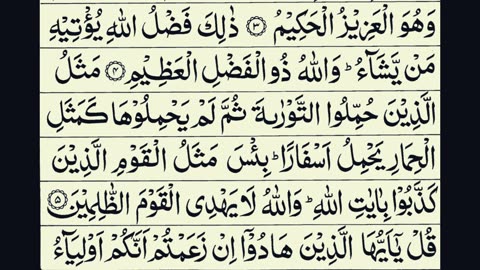 وَهُوَ الْعَزِيْزُ الْحَكِيْمُ ﴿۳﴾ ذٰلِكَ فَضْلُ اللّٰهِ يُؤْتِيْهِ
مَنْ يَّشَآءُ ؕ وَاللّٰهُ ذُو الْفَضْلِ الْعَظِيْمِ ﴿۴﴾ مَثَلُ
الَّذِيْنَ حُمِّلُوا التَّوْرٰىةَ ثُمَّ لَمْ يَحْمِلُوْهَا كَمَثَلِ
الْحِمَارِ يَحْمِلُ اَسْفَارًا ؕ بِئْسَ مَثَلُ الْقَوْمِ الَّذِيْنَ
كَذَّبُوْا بِاٰيٰتِ اللّٰهِ ؕ وَاللّٰهُ لَا يَهْدِى الْقَوْمَ الظّٰلِمِيْنَ ﴿۵﴾
قُلْ يٰۤاَيُّهَا الَّذِيْنَ هَادُوْۤا اِنْ زَعَمْتُمْ اَنَّكُمْ اَوْلِيَآءُ